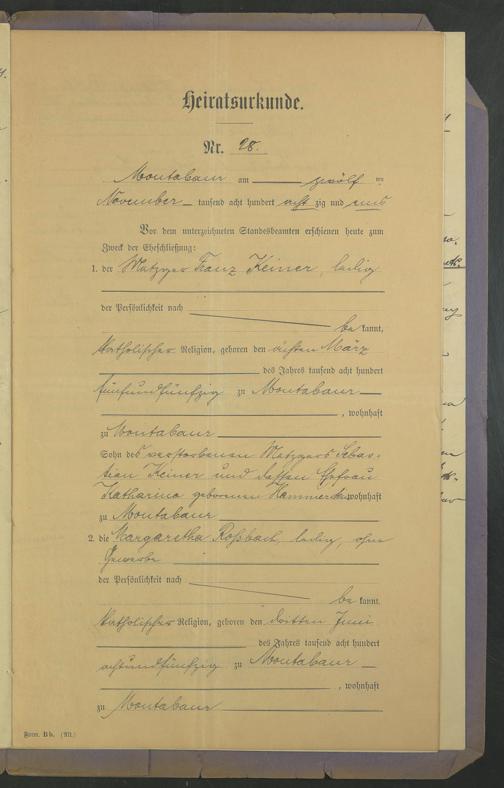 Heiratsurkunde.
Nr. 28.
Montabaur am zwölf ten
November tausend acht hundert acht zig und eins
Vor dem unterzeichneten Standesbeamten erschienen heute zum
Zweck der Eheschließung:
1. der Metzger Franz Keiner, ledig
der Persönlichkeit nach
be kannt,
katholischer Religion, geboren den achten März
des Jahres tausend acht hundert
fünfundfünfzig zu Montabaur
, wohnhaft
zu Montabaur
Sohn des verstorbenen Metzgers Sebas-
tian Keiner und dessen Ehefrau
Katharina geborenen wohnhaft
zu Montabaur
2. die Margaretha Roßbach, ledig, ohne
Gewerbe
der Persönlichkeit nach
be kannt,
katholischer Religion, geboren den dritten Juni
des Jahres tausend acht hundert
achtundfünfzig zu Montabaur
, wohnhaft
zu Montabaur
Form. B b.